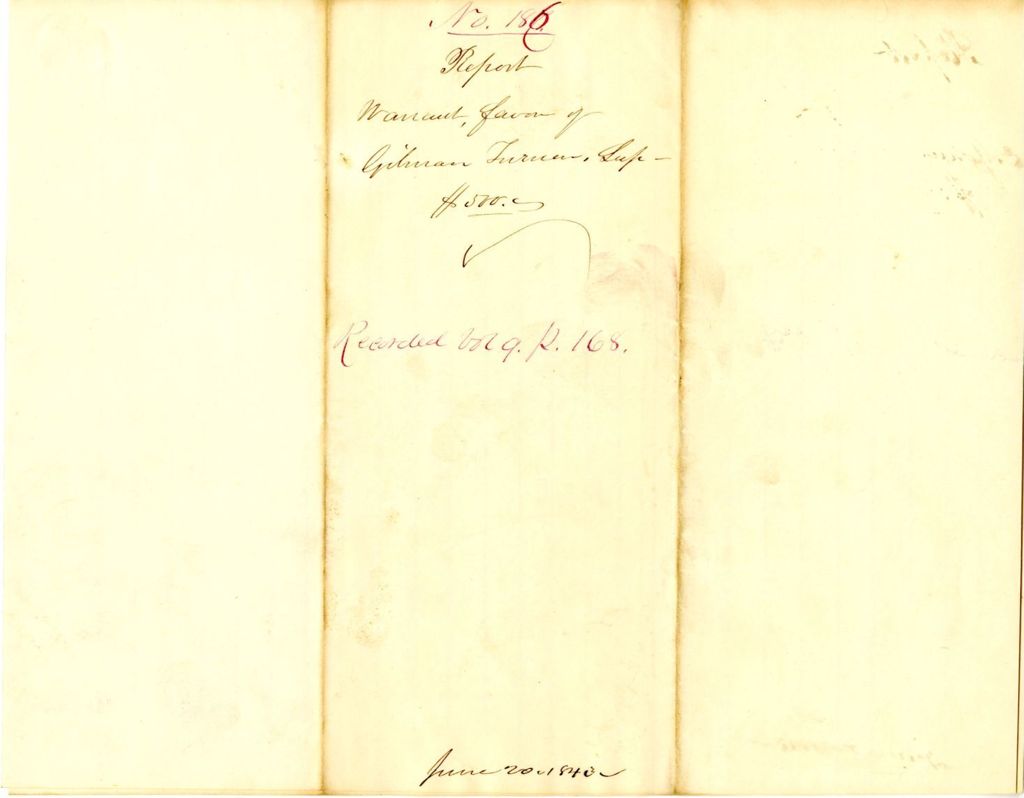 No. 186
Report
Warrant, favor of
Gilman Turner, Sup-
$500.
Recorded Vol 9. P. 168.
June 20. 1843